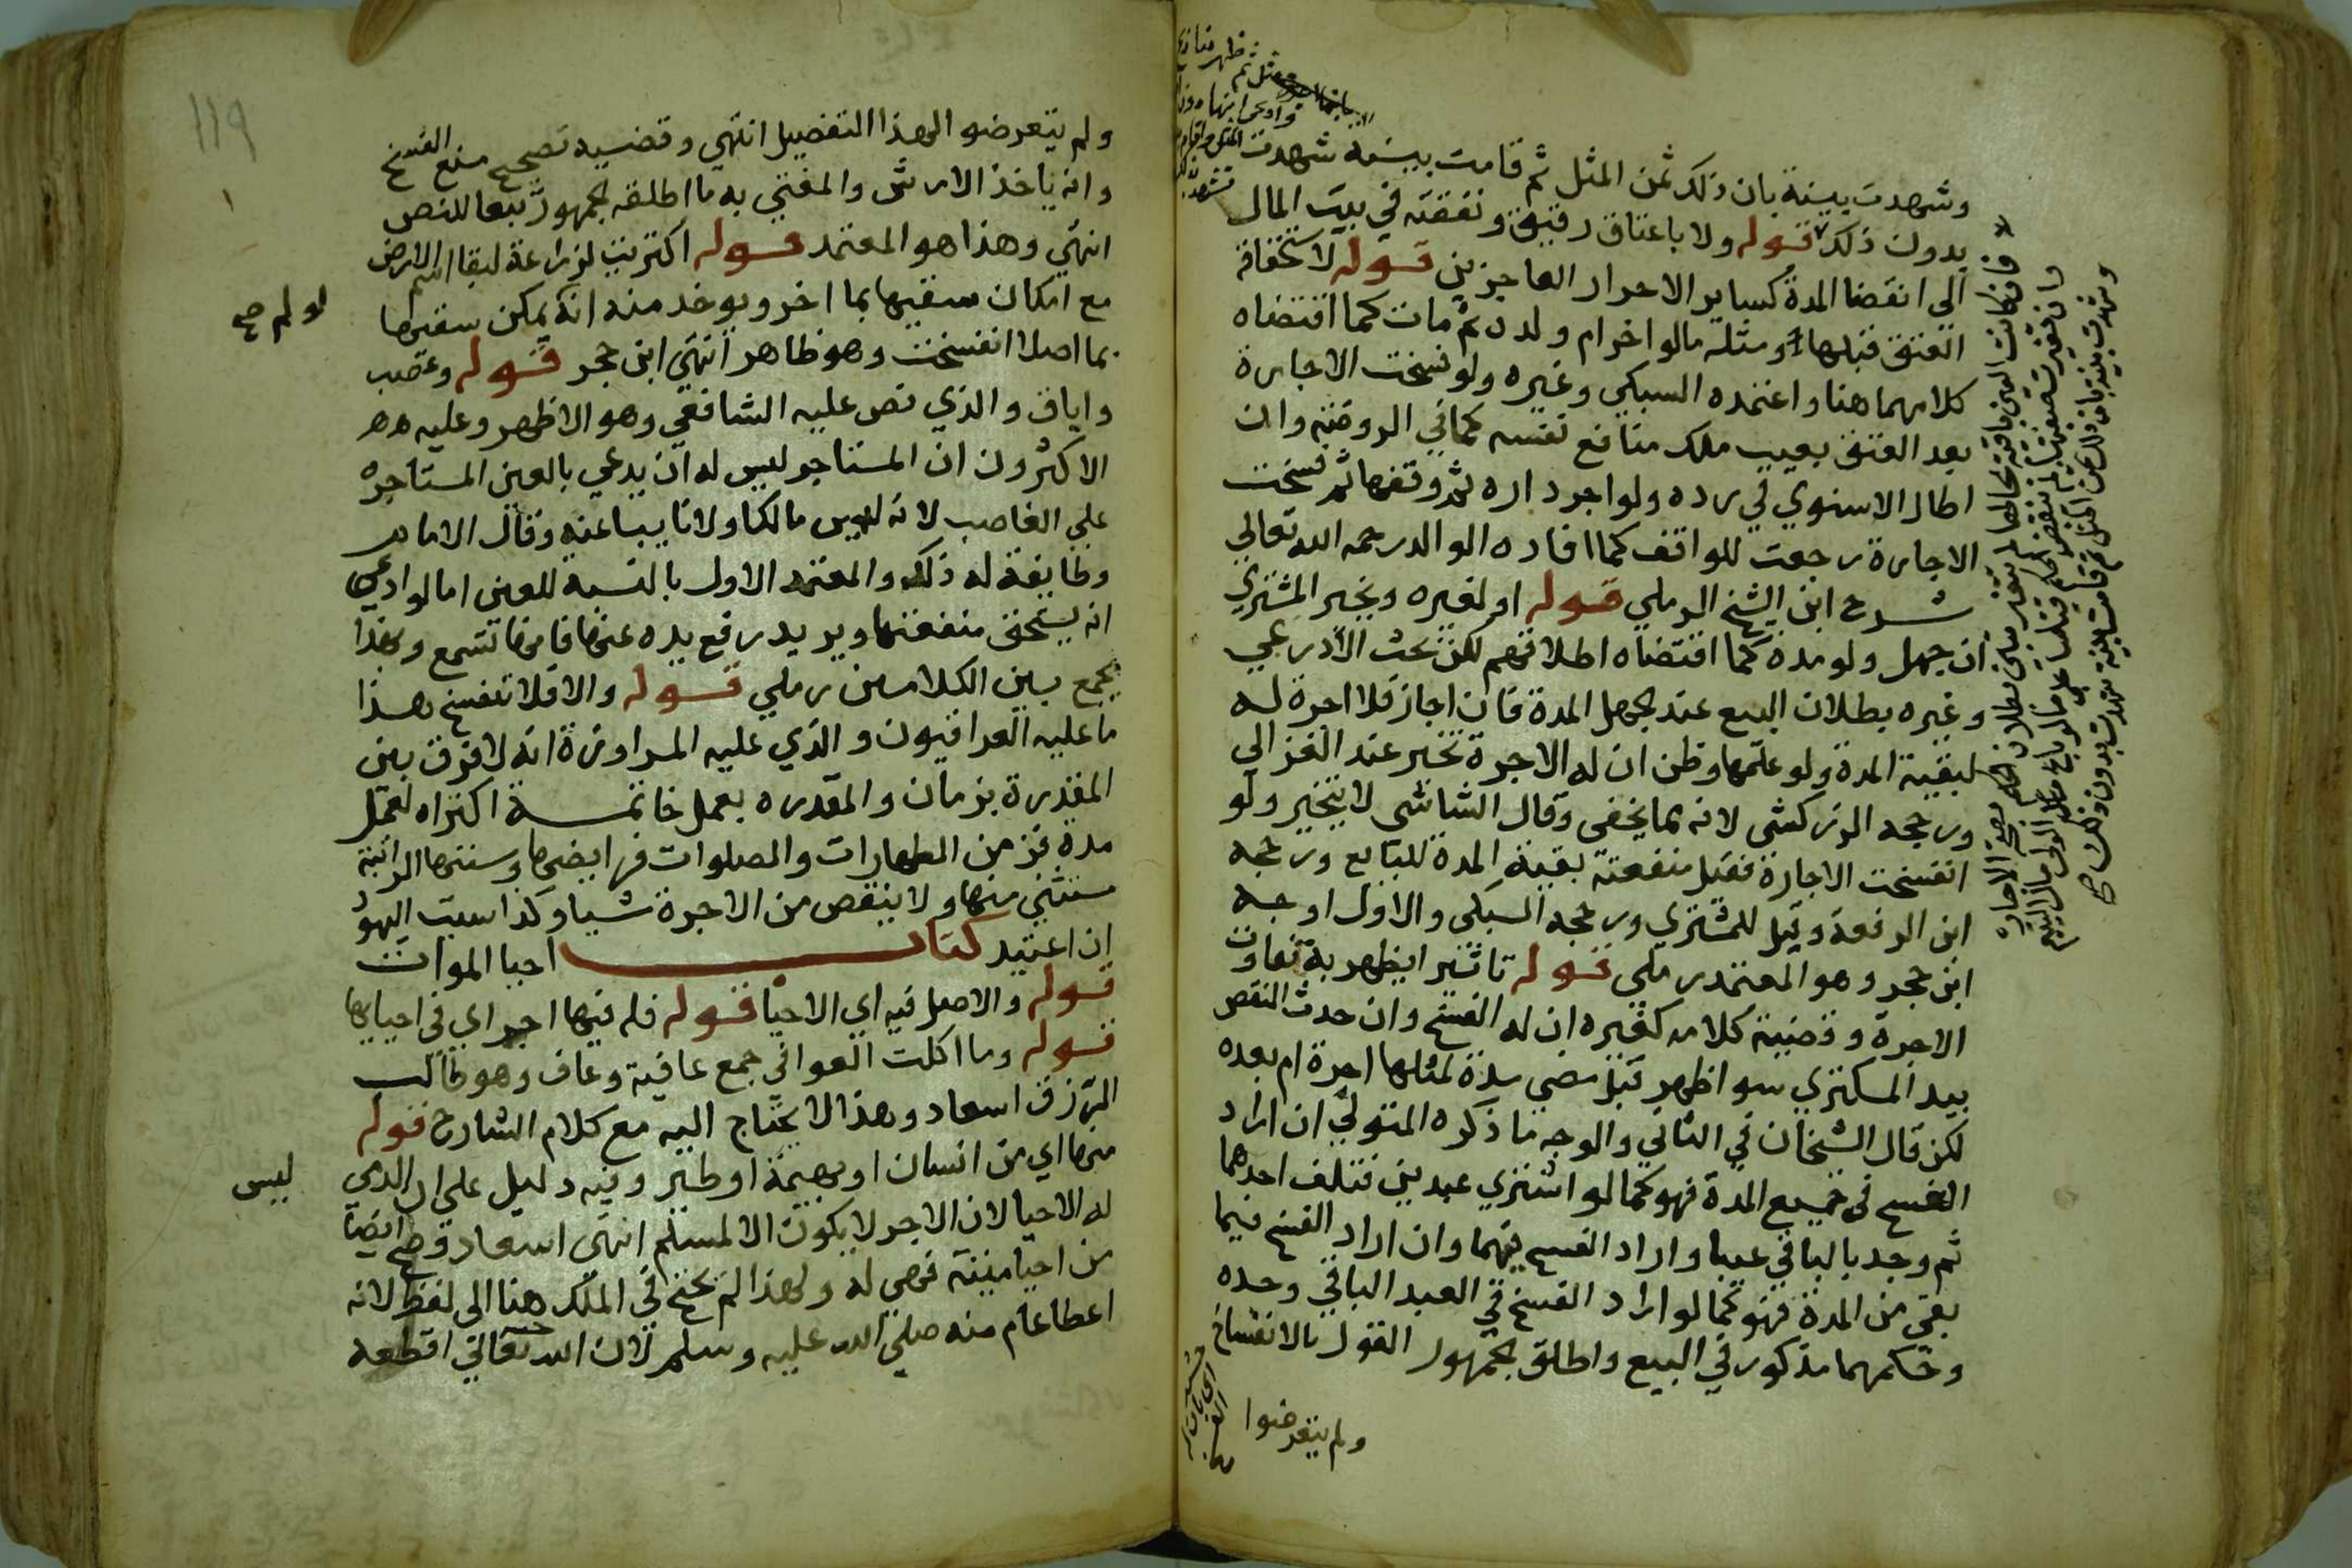 وشهدت بينة بان ذلك ثمن المثل ثم قامت بينة شهدت
بدون ذلك قوله ولا باعتاق رقيق ونفقته في بيت المال
الى انقضا المدة كساير الاحرار العاجزين قوله لاستحقاقه
العتق قبلها ومثله مالو اخرام ولده ثم مات كما اقتضاه
كلامهما هنا واعتمده السبكي وغيره ولو فسخت الاجارة
بعد العتق بعيب ملك منافع نفسه كما في الروضة وان
اطال الاسنوي في رده ولو اجر داره ثم وقفها ثم فسخت
الاجارة رجعت للواقف كما افاده الوالد رحمه الله تعالى
شرح ابن الشيخ الرملي قوله او لغيره ويخير المشتري
ان جهل ولو مدة كما اقتضاه اطلاقهم لكن بحث الأدرعي
وغيره بطلان البيع عند جهل المدة فان اجاز فلا اجرة له
لبقية المدة ولو علمها وظن ان له الاجرة تخير عند الغزالي
ورجحه الزركشي لانه مما يخفى وقال الشاشي لا يتخير ولو
انفسخت الاجارة فقيل منفعته بقية المدة للبايع ورجحه
ابن الرفعة وقيل للمشتري ورجحه السبكي والاول اوجه
ابن حجر وهو المعتمد رملي قوله تاثيرا يظهر به تفاوت
الاجرة وقضية كلامه كغيره ان له الفسخ وان حدث النقص
بيد المكتري سوا ظهر قبل مضي مدة لمثلها اجرة ام بعده
لكن قال الشيخان في الثاني والوجه ما ذكره المتولي ان اراد
الفسخ في جميع المدة فهو كما لو اشتري عبدين فتلف احدهما
ثم وجد بالباقي عيبا واراد الفسخ فيهما وان اراد الفسخ فيما
بقى من المدة فهو كما لو اراد الفسخ في العبد الباقي وحده
وحكمهما مذكور في البيع واطلق الجمهور القول بالانفساخ
ولم يتعرضوا
فان كانت العين باقية بحالها لم تتغير بطلان الحكم بصحة الاجارة
وشهدت بينة بان ذلك ثمن المثل ثم قامت بينة شهدت بدون ذلك
١١٩
ولم يتعرضو الهذا التفصيل انتهي وقضيه تصحيح منع الفسخ
وانه ياخذ الارش والمفتي به ما اطلقه الجمهور تبعا للنص
انتهي وهذا هو المعتمد قوله اكتريت لزراعة لبقا اسم الارض
مع امكان سقيها بما اخر ويوخد منه انه يمكن سقيها
لو لم صح
بما اصلا انفسخت وهو ظاهر انتهي ابن حجر قوله وغصب
واباق والذي نص عليه الشافعي وهو الاظهر وعليه
الاكثرون ان المستاجر ليس له ان يدعي بالعين المستاجره
علي الغاصب لانه ليس مالكا ولا نايبا عنه وقال الامام
وطايفة له ذلك والمعتمد الاول بالنسبة للعين اما لو ادعي
انه يستحق منفعتها ويريد رفع يده عنها فانها تسمع وبهذا
يجمع بين الكلامين رملي قوله والا فلا تنفسخ هذا
ما عليه العراقيون والذي عليه المراوزة انه لا فرق بين
المقدرة بزمان والمقدره بعمل خاتمة اكتراه لعمل
مدة فزمن الطهارات والصلوات فرايضها وسننها الراتبة
مستثني منها ولا ينقص من الاجرة شيا وكذا سبت اليهود
ان اعتيد كتاب احيا الموات
قوله والاصل فيه اي الاحيا قوله فله فيها اجر اي في احيايها
قوله وما اكلت العوافي جمع عافية وعاف وهو طالب
الرزق اسعاد وهذا لا يحتاج اليه مع كلام الشارح قوله
منها اي من انسان او بهيمة او طير وفيه دليل على ان الذي
ليس
له الاحيا لان الاجر لا يكون الا لمسلم انتهي اسعاد وصح ايضا
من احيا ميتة فهي له ولهذا لم يحتج في الملك هنا الى لفظ لانه
اعطا عام منه صلي الله عليه وسلم لان الله تعالي اقطعه